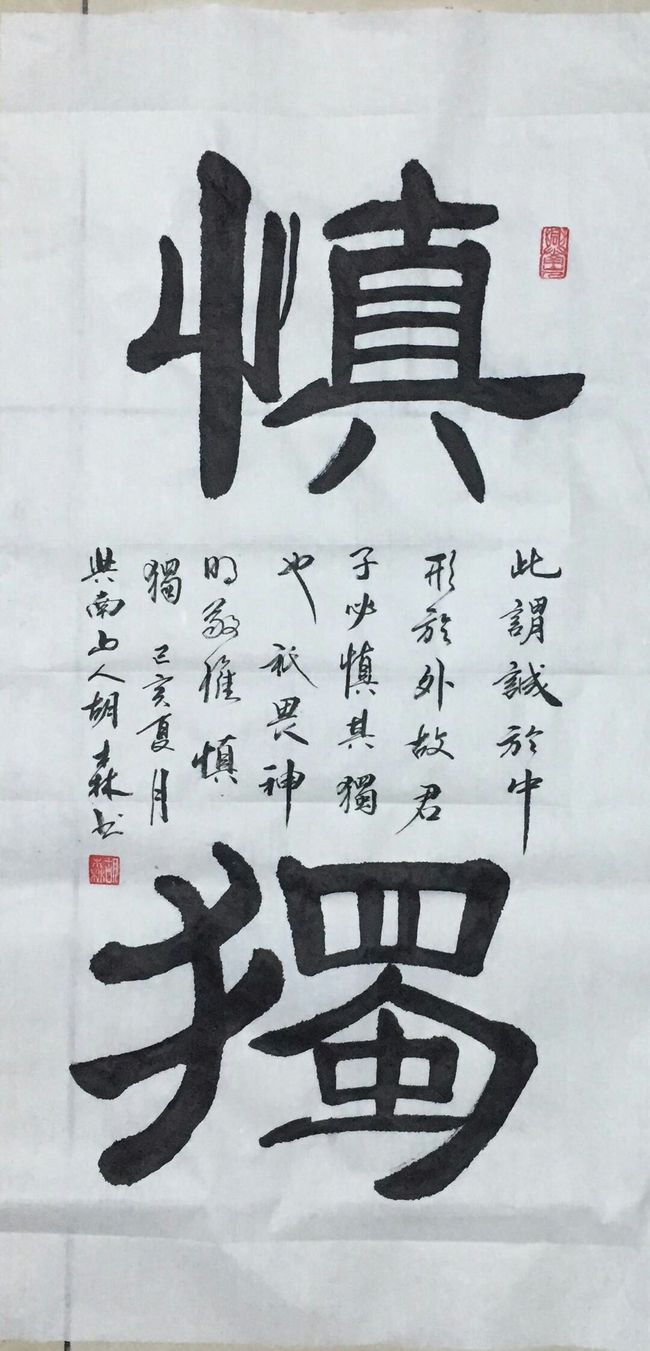 慎獨
此謂誠於中
形於外故君
子必慎其獨
也祇畏神
明敬惟慎
獨 己亥夏月
興南山人胡森書
胡森